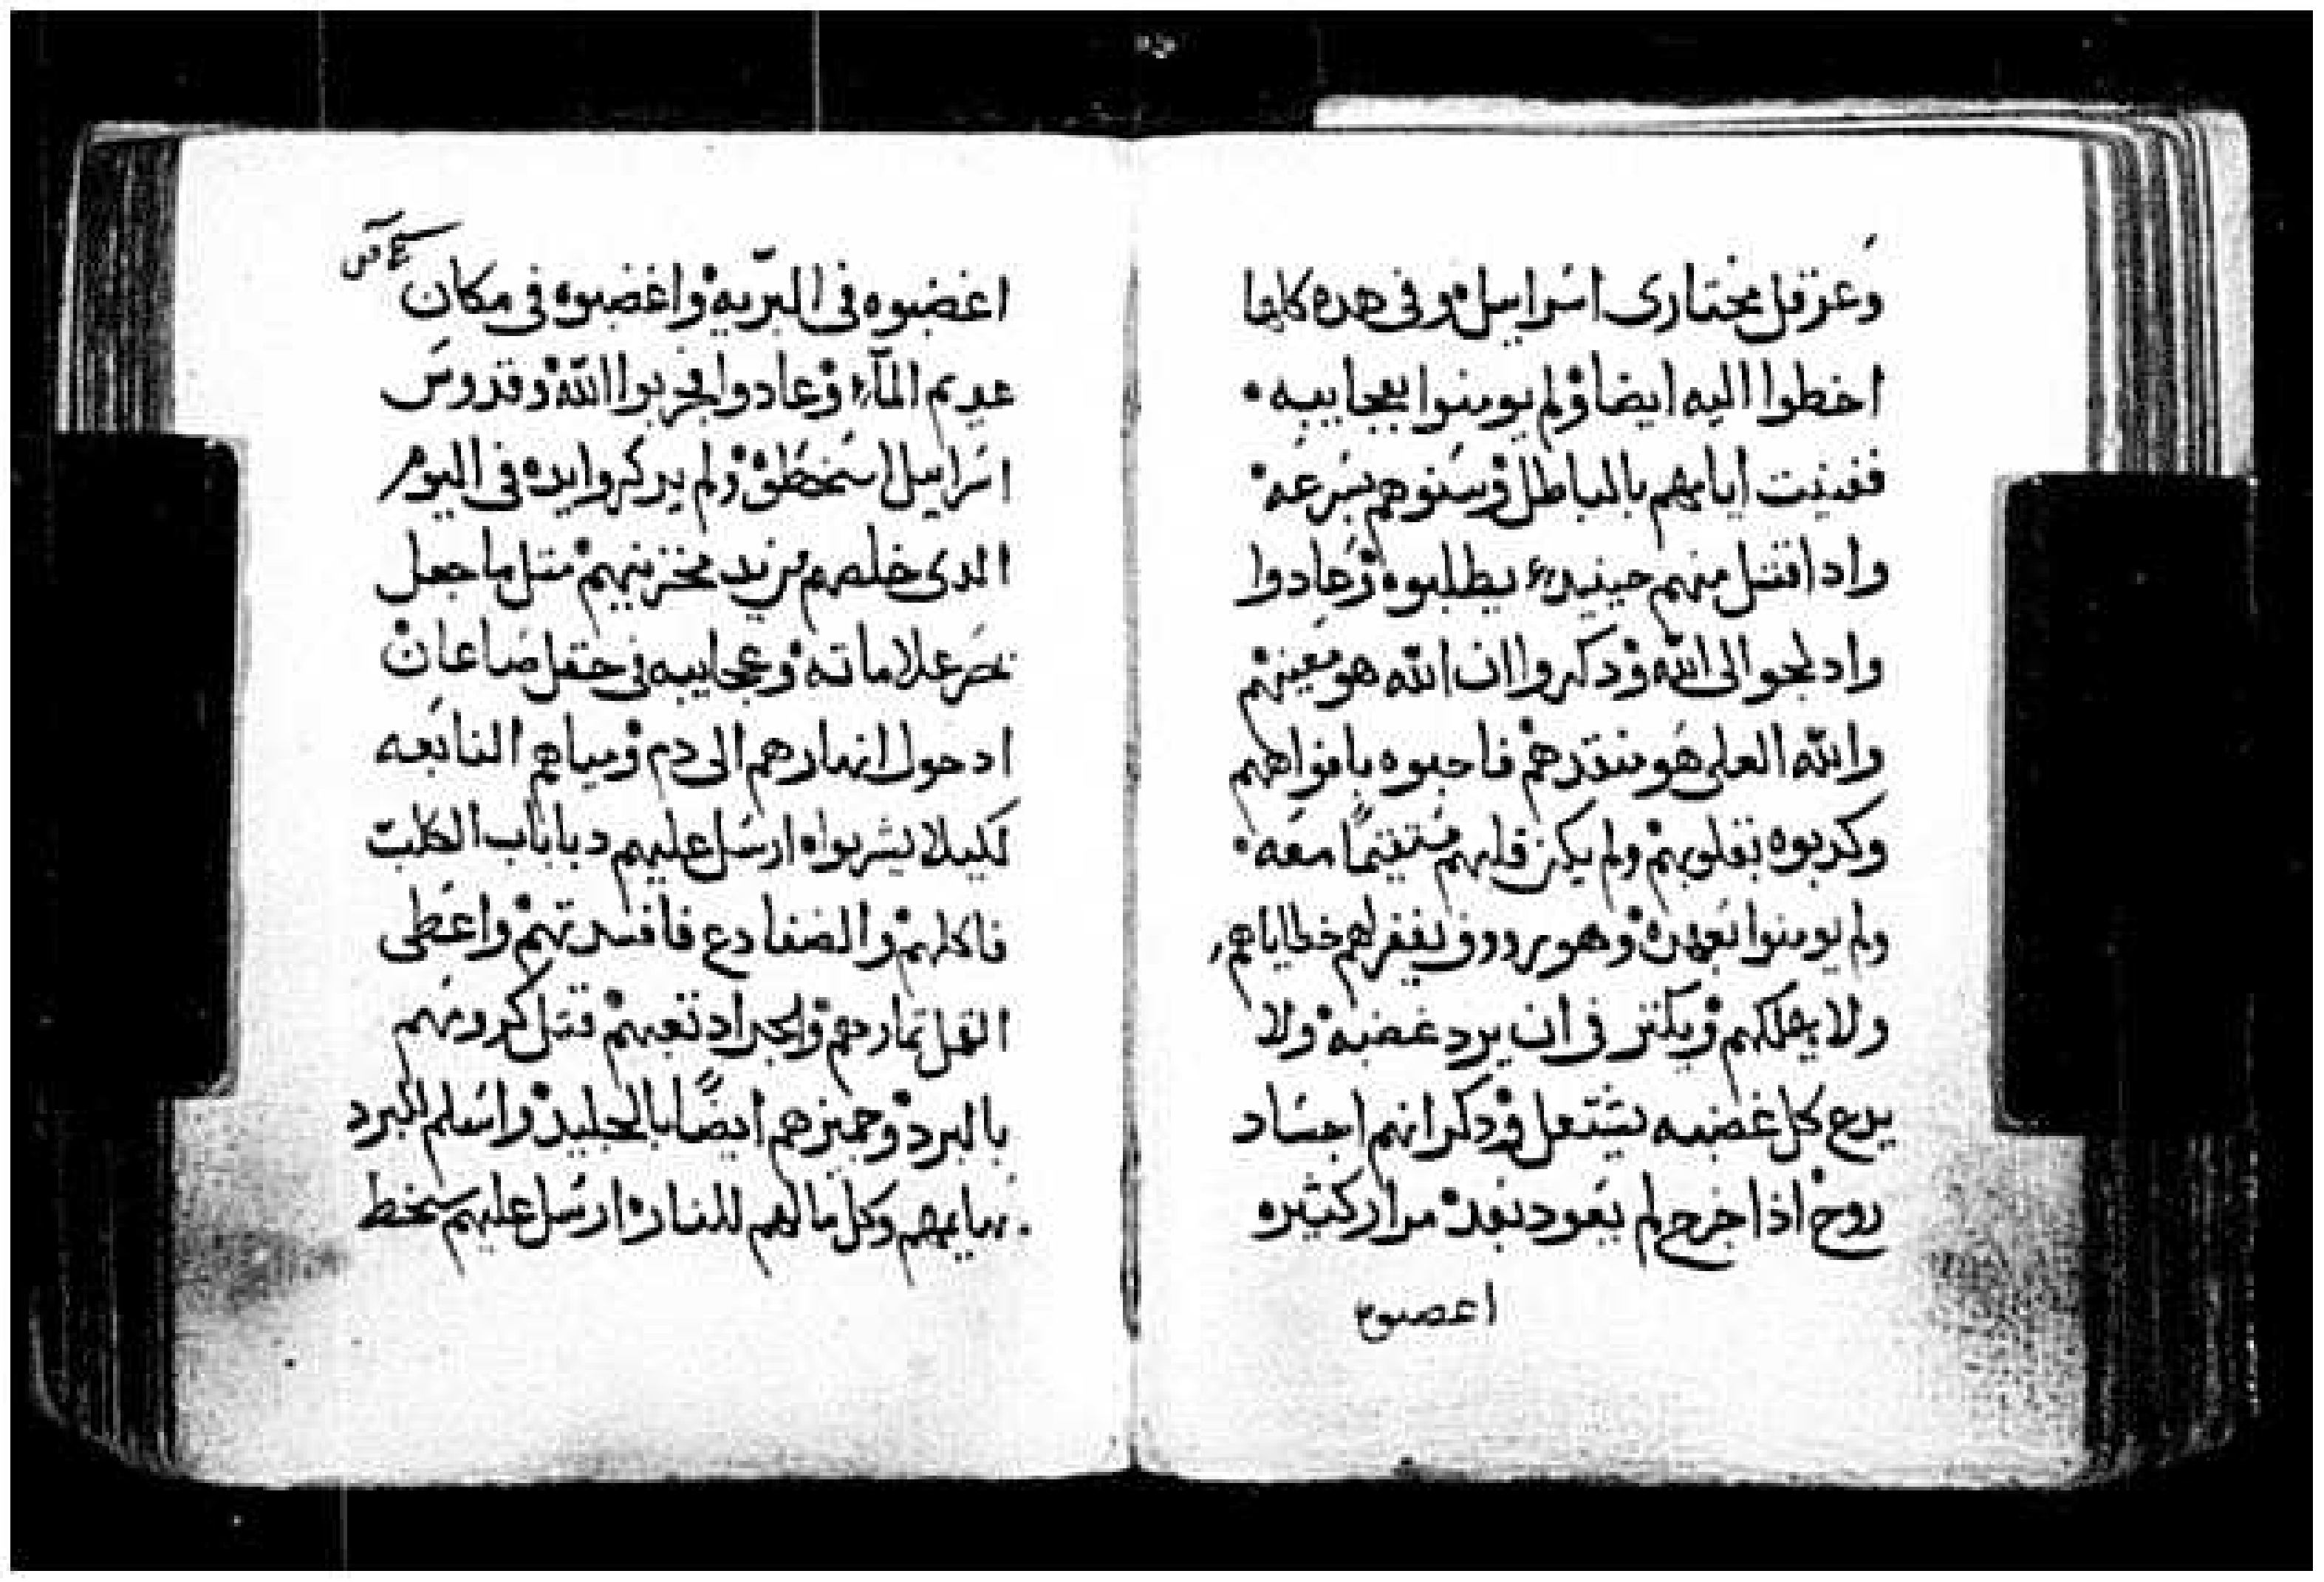 وعرقل مختارى اسراييل وفى هده كلها
اخطوا اليه ايضا ولم يومنوا بعجاييبه
ففنيت ايامهم بالباطل وسنوهم بسرعه
وادا قتل منهم حينيد يطلبوه وعادوا
واد لجوا الى الله ودكروا ان الله هو معينهم
والله العلى هو منقدهم فاحبوه بافواههم
وكدبوه بقلوبهم ولم يكن قلبهم مستقيمًا معه
ولم يومنوا بعهده وهو رووف يغفر لهم خطاياهم
ولا يهلكهم ويكثر فى ان يرد غضبه ولا
يدع كل غضبه يشتعل ودكر انهم اجساد
روح اذا خرج لم يعود بعد مرار كثيره
اغضبوه
اغضبوه فى البريه واغضبوه فى مكان
عديم الماء وعادوا فجربوا الله وقدوس
اسراييل اسخطوه ولم يدكروا يده فى اليوم
الدى خلصهم من يد محزنيهم مثل ما جعل
بمصر علاماته وعجاييبه فى حقل صاعان
اد حول انهارهم الى دم ومياههم النابعه
لكيلا يشربوا ارسل عليهم دباب الكلب
فاكلهم والضفادع فافسدتهم واعطى
القمل ثمارهم والجراد تعبهم قتل كرومهم
بالبرد وجميزهم ايضًا بالجليد واسلم للبرد
بهايمهم وكل مالهم للنار ارسل عليهم سخط